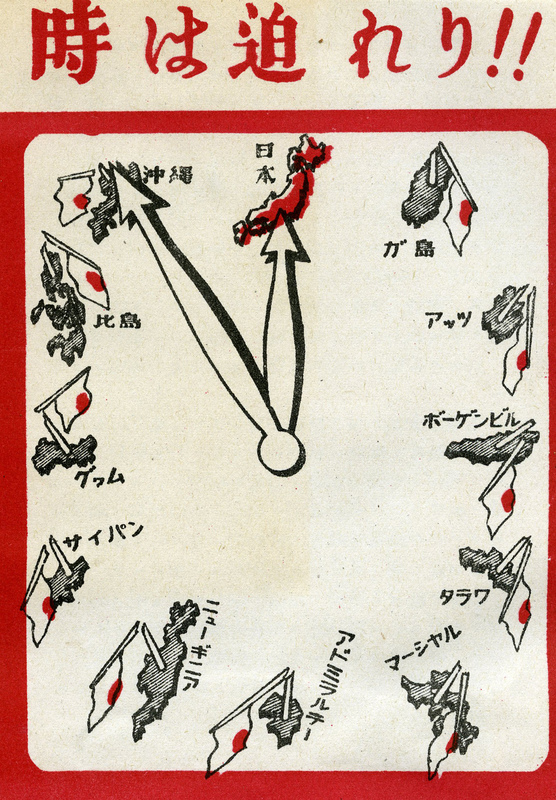 時は迫れり!!
日本
ガ島
アッツ
ボーゲンビル
タラワ
マーシャル
アドミラルテー
ニューギニア
サイパン
グァム
比島
沖縄